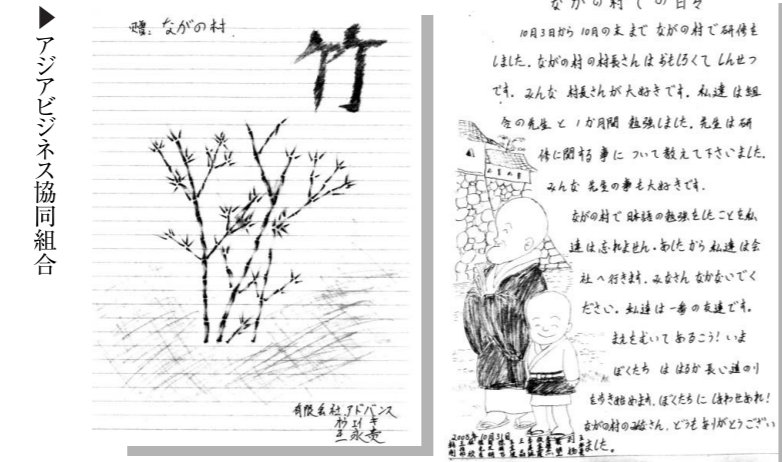 ▶アジアビジネス協同組合
贈: ながの村
竹
有限会社 アドバンス
ながの村での日々
10月3日から10月の末まで ながの村で研修を
しました。ながの村の村長さんはおもしろくてしんせつ
です。みんな 村長さんが大好きです。私達は組
合の先生と 1か月間 勉強しました。先生は研
修に関する事について教えて下さいました。
みんな 先生の事も大好きです。
ながの村で日本語の勉強をしたことを私
達は忘れません。あしたから私達は会
社へ行きます。みなさん なかないでく
ださい。私達は一番の友達です。
まえをむいて あるこう! いま
ぼくたち は はるか 長い道のり
を歩き始めます。ぼくたちに しあわせあれ!
ながの村のみなさん、どうも ありがとうござい
ました。
2008年10月31日